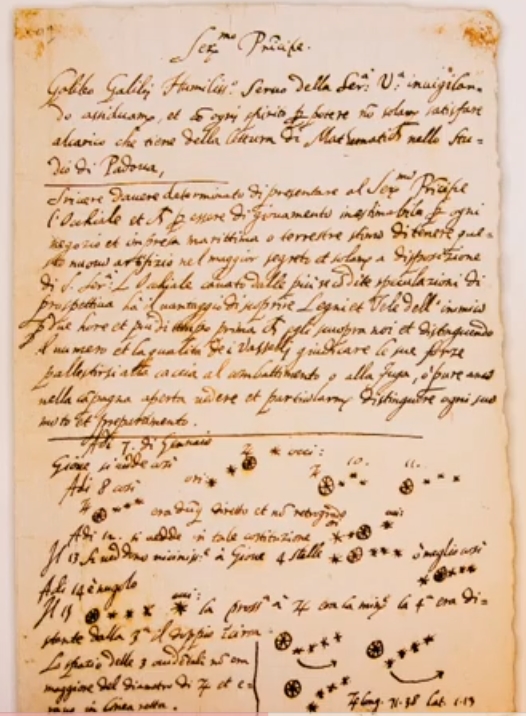 Ser.mo Principe.
Galileo Galilej Humiliss.o Servo della Ser.a V.a invigilan-
do assiduam.te, et con ogni spirito p potere nõ solam satisfare
alcarico che tiene della lettura di Mathematich nello Stu-
dio di Padova,
Scrivere davere determinato di presentare al Ser.mo Pricipe
l'Occhiale et p essere di giovamento inestimabile p ogni
negozio et impresa marittima o terrestre stimo di tenere que-
sto nuovo artefizio nel maggior segreto et solam a disposizione
di S. Ser.a L'Occhiale cavato dalle più recõdite speculazioni di
prospettiva ha il vantaggio di scoprire Legni et Vele dell'inimico
p due hore et più di tempo prima ch egli scuopra noi et distinguendo
il numero et la qualità de i Vasselli giudicare le sue forze
pallestirsi alla caccia al combattimento o alla fuga, o pure anco
nella capagna aperta vedere et particolarm distinguere ogni suo
moto et preparamento.
Adi 7. di Gennaio
Gione si vedde cosi ori: occi:
Adi 8 cosi 10. 11.
era dũq diretto et nõ retrogrado
Adi 12. si vedde in tale costituzione
Il 13 si veddono vicinis.e à Giove 4 stelle ò meglio cosi
Adi 14 è nugolo
Il 15 occi: la pross.a à ♃ era la min.e la 4.a era di-
stante dalla 3.a il doppio Circa
Lo spazio delle 3 occidẽtali nõ era
maggiore del diametro di ♃ et e-
rano in linea retta.
♃ long. 71.38 lat. 1.13